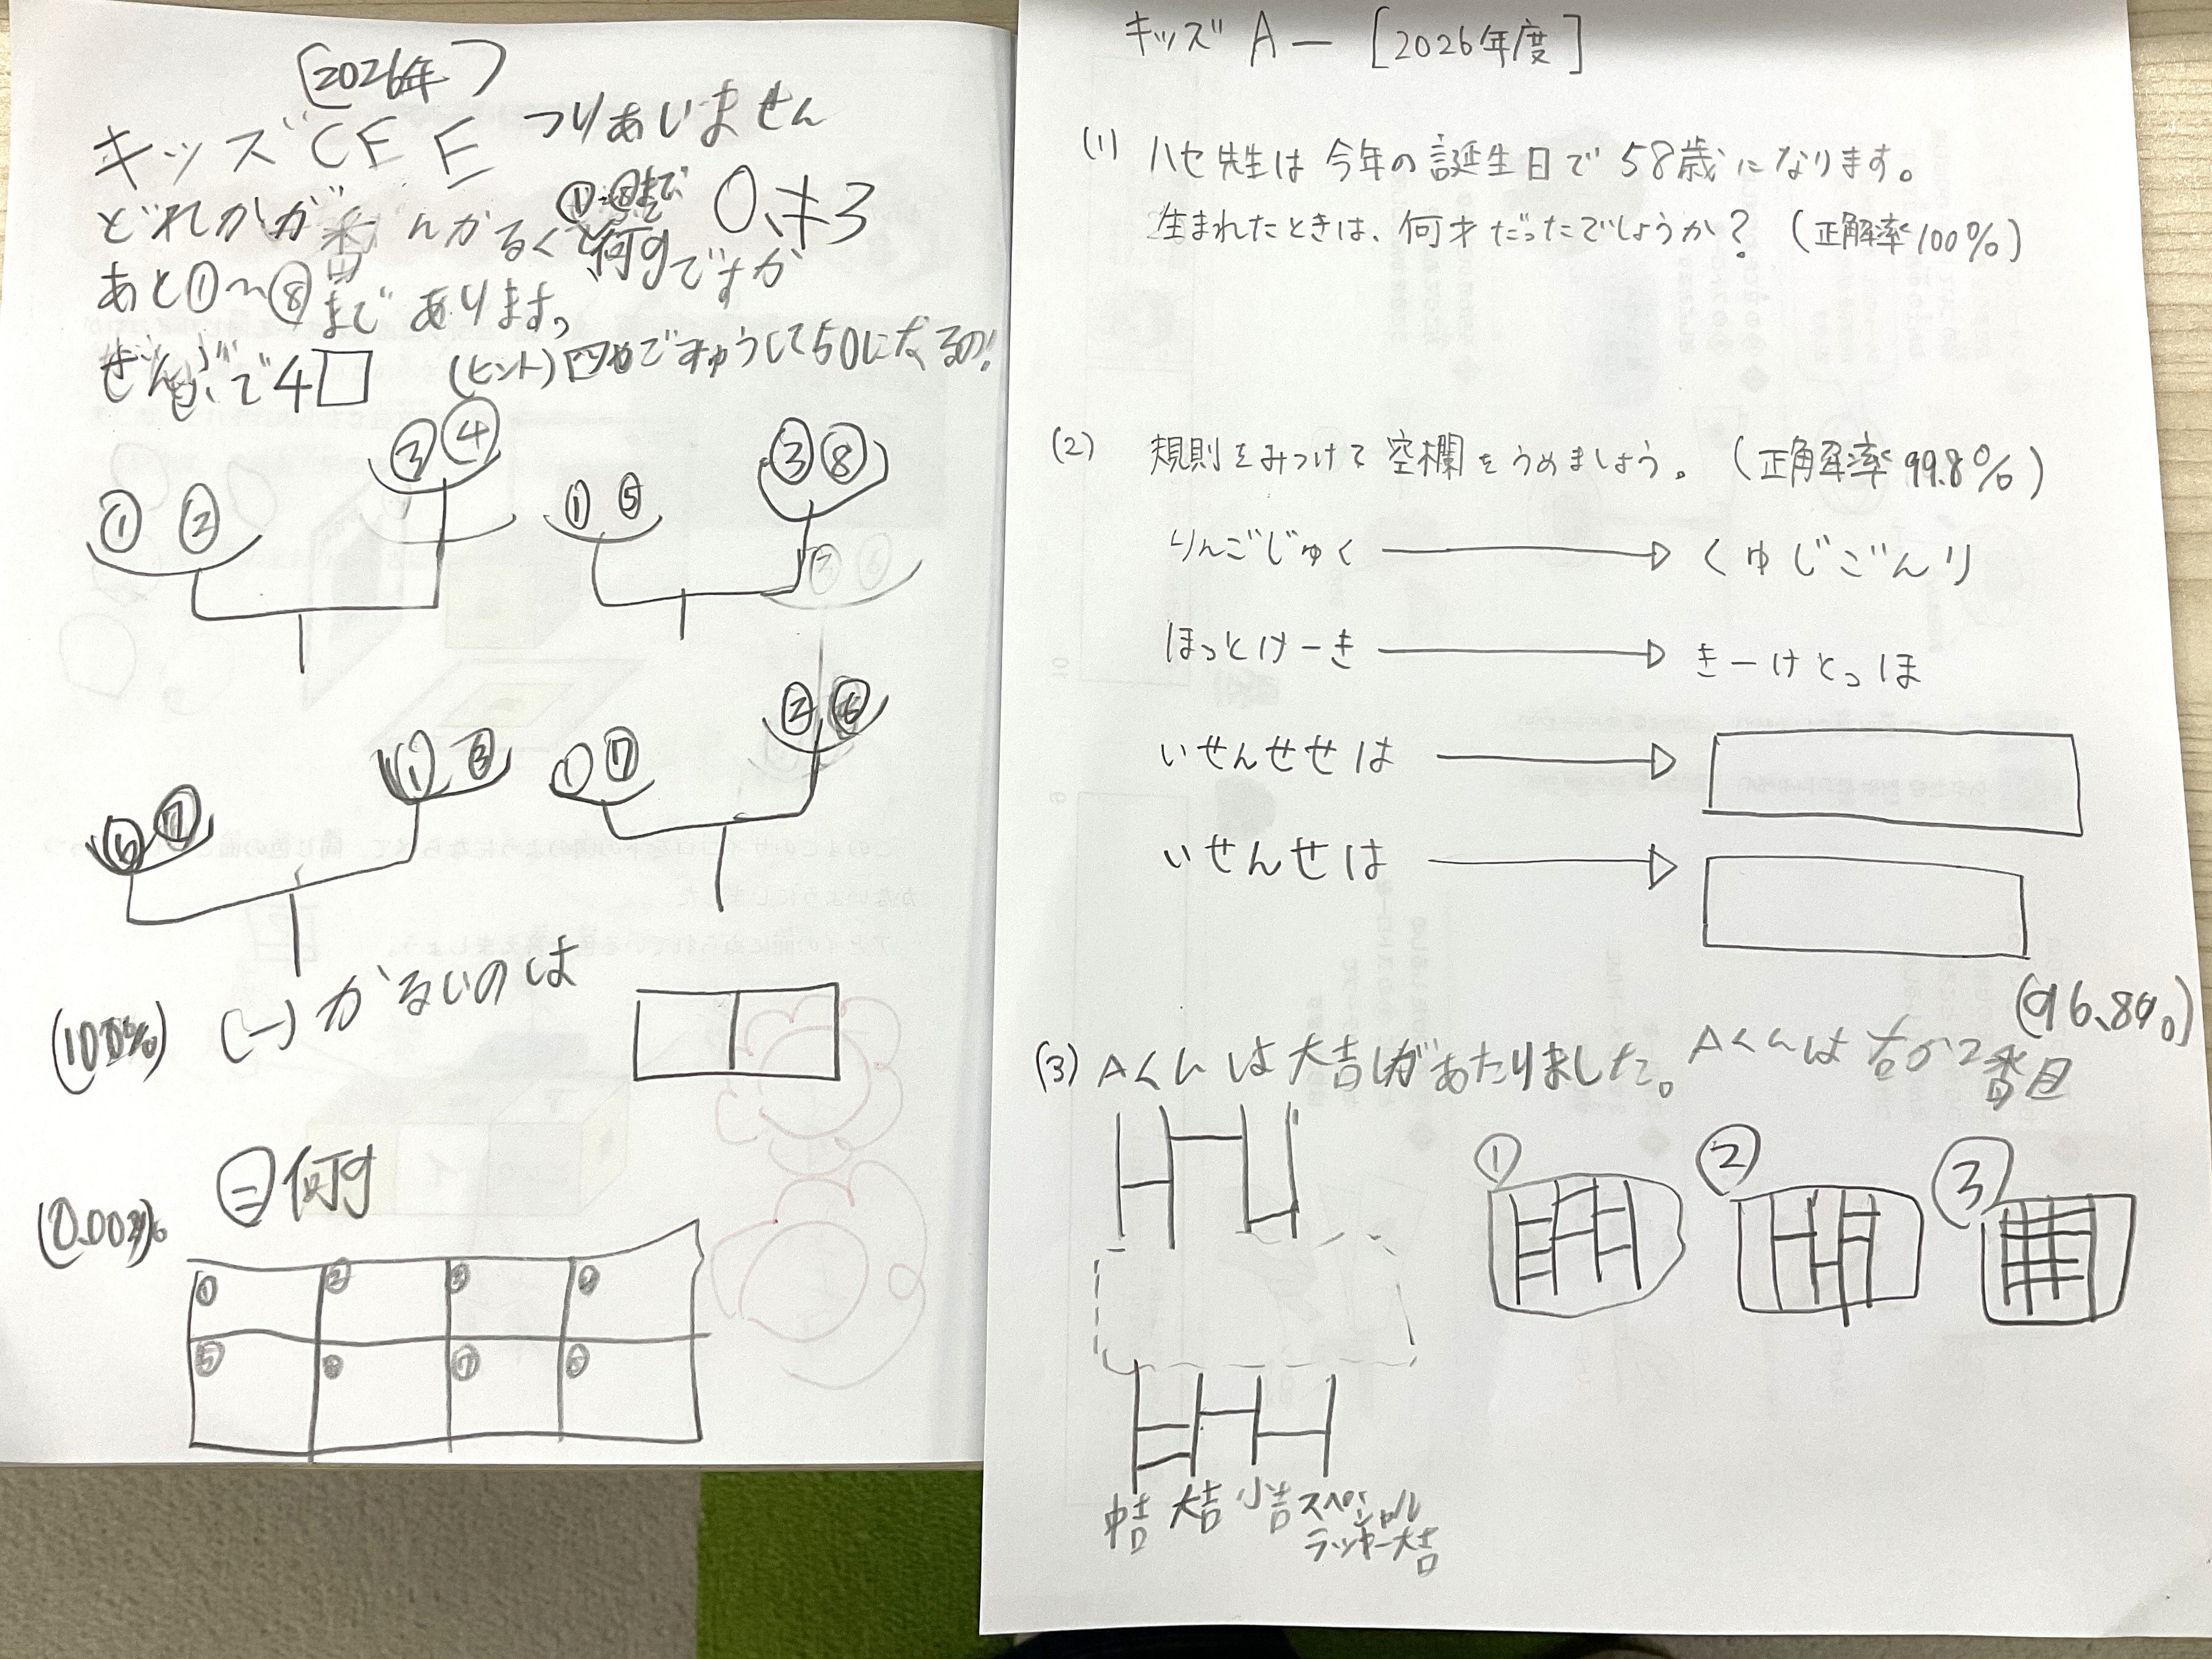 [2026年]
キッズCEE つりあいません
どれかが 番 んかるく 何gですか
0、キ3
あと①〜⑧まであります。
ぜんぶで4□
(ヒント)
50になるの!
① ②
③ ④
① ⑤
③ ⑧
⑥ ⑦
① ⑧
① ⑦
② ⑥
(100%) (一) かるいのは
二 何g
① ② ③ ④
⑤ ⑦
キッズ A ー [2026年度]
(1) ハセ先生は今年の誕生日で58歳になります。
生まれたときは、何才だったでしょうか? (正解率100%)
(2) 規則をみつけて空欄をうめましょう。 (正解率99.8%)
りんごじゅく くゅじごんり
ほっとけーき きーけとっほ
いせんせせは
いせんせは
(96.8%)
(3) Aくんは大吉があたりました。Aくんは右から2番目
① ② ③
中吉 大吉 小吉 スペシャル
ラッキー大吉